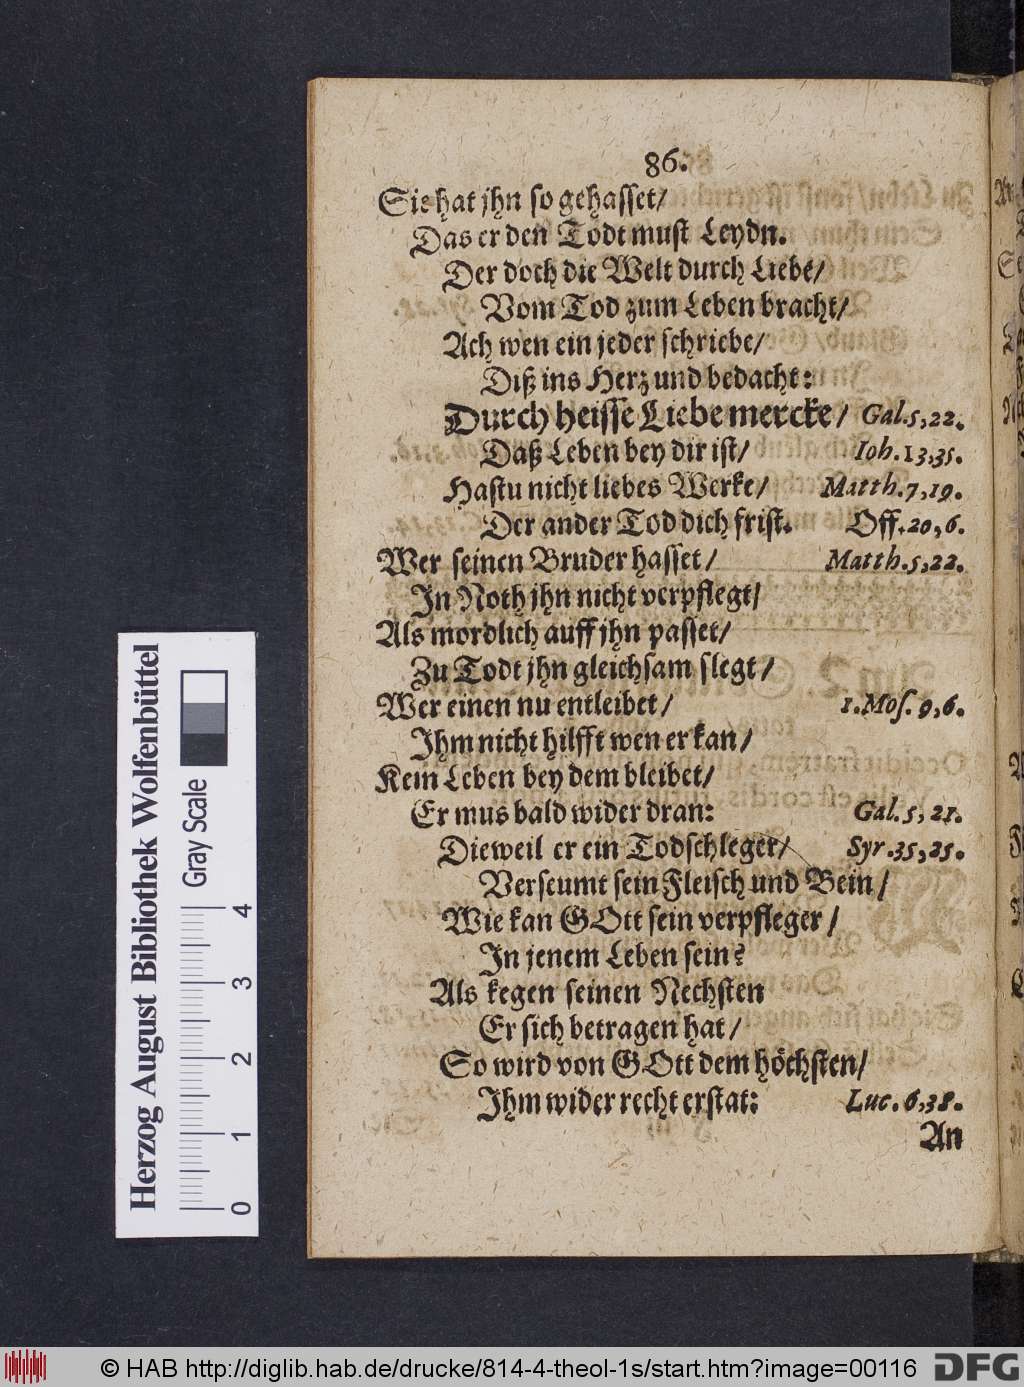 86.
Sie hat jhn so gehasset/
Das er den Todt must Leydn.
Der doch die Welt durch Liebe/
Vom Tod zum Leben bracht/
Ach wen ein jeder schriebe/
Diß ins Herz und bedacht:
Durch heisse Liebe mercke/ Gal.5,22.
Daß Leben bey dir ist/ Ioh.13,35.
Hastu nicht liebes Werke/ Matth.7,19.
Der ander Tod dich frist. Off.20,6.
Wer seinen Bruder hasset/ Matth.5,22.
In Noth jhn nicht verpflegt/
Als mordlich auff jhn passet/
Zu Todt jhn gleichsam slegt/
Wer einen nu entleibet/ 1.Mos.9,6.
Ihm nicht hilfft wen er kan/
Kein Leben bey dem bleibet/
Er mus bald wider dran: Gal.5,21.
Dieweil er ein Todschleger/ Syr.35,25.
Verseumt sein Fleisch und Bein/
Wie kan GOtt sein verpfleger/
In jenem Leben sein?
Als kegen seinen Nechsten
Er sich betragen hat/
So wird von GOtt dem höchsten/
Ihm wider recht erstat: Luc.6,38.
An
Herzog August Bibliothek Wolfenbüttel
Gray Scale
0 1 2 3 4
© HAB http://diglib.hab.de/drucke/814-4-theol-1s/start.htm?image=00116
DFG